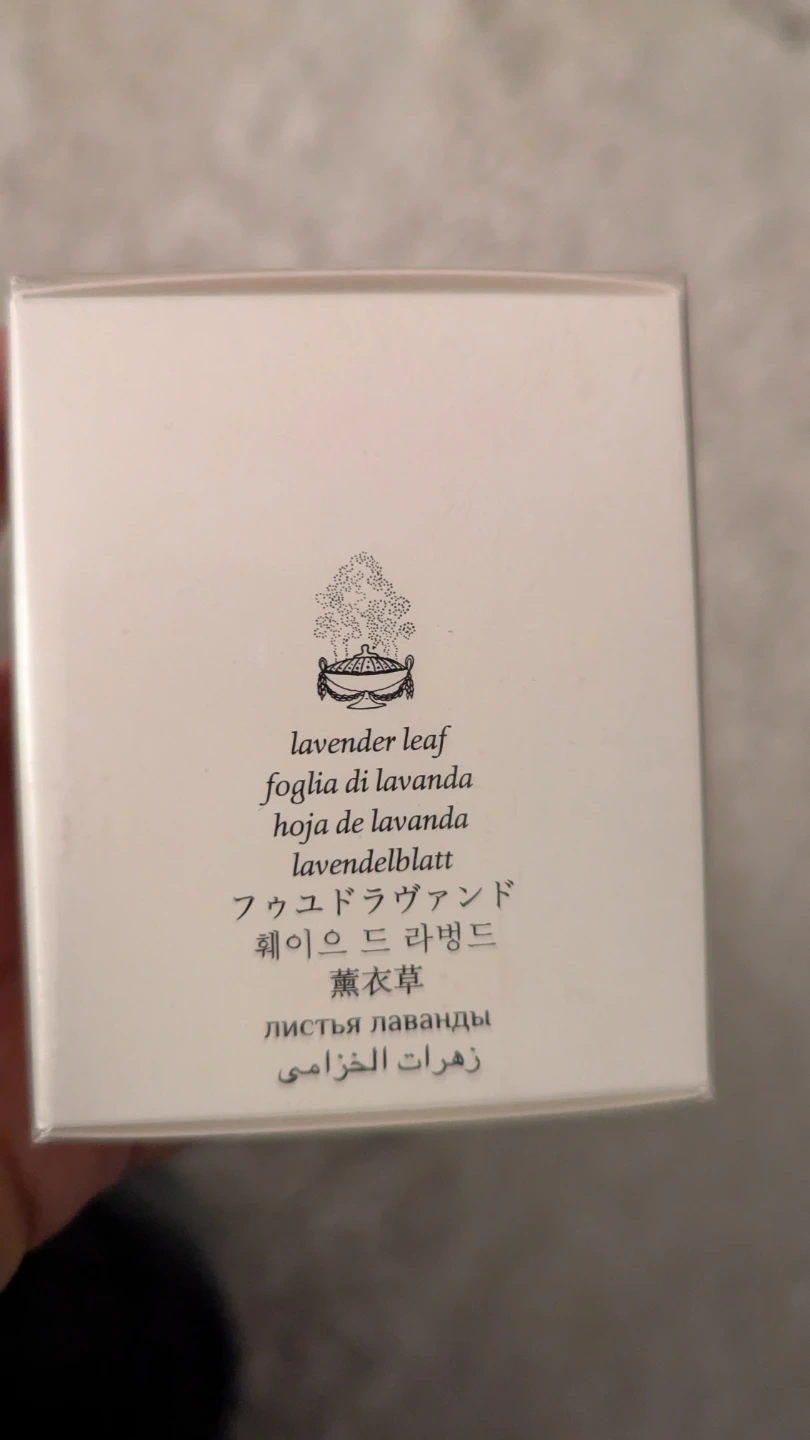 lavender leaf
foglia di lavanda
hoja de lavanda
lavendelblatt
フゥユドラヴァンド
훼이으 드 라벙드
薰衣草
листья лаванды
زهرات الخزامى